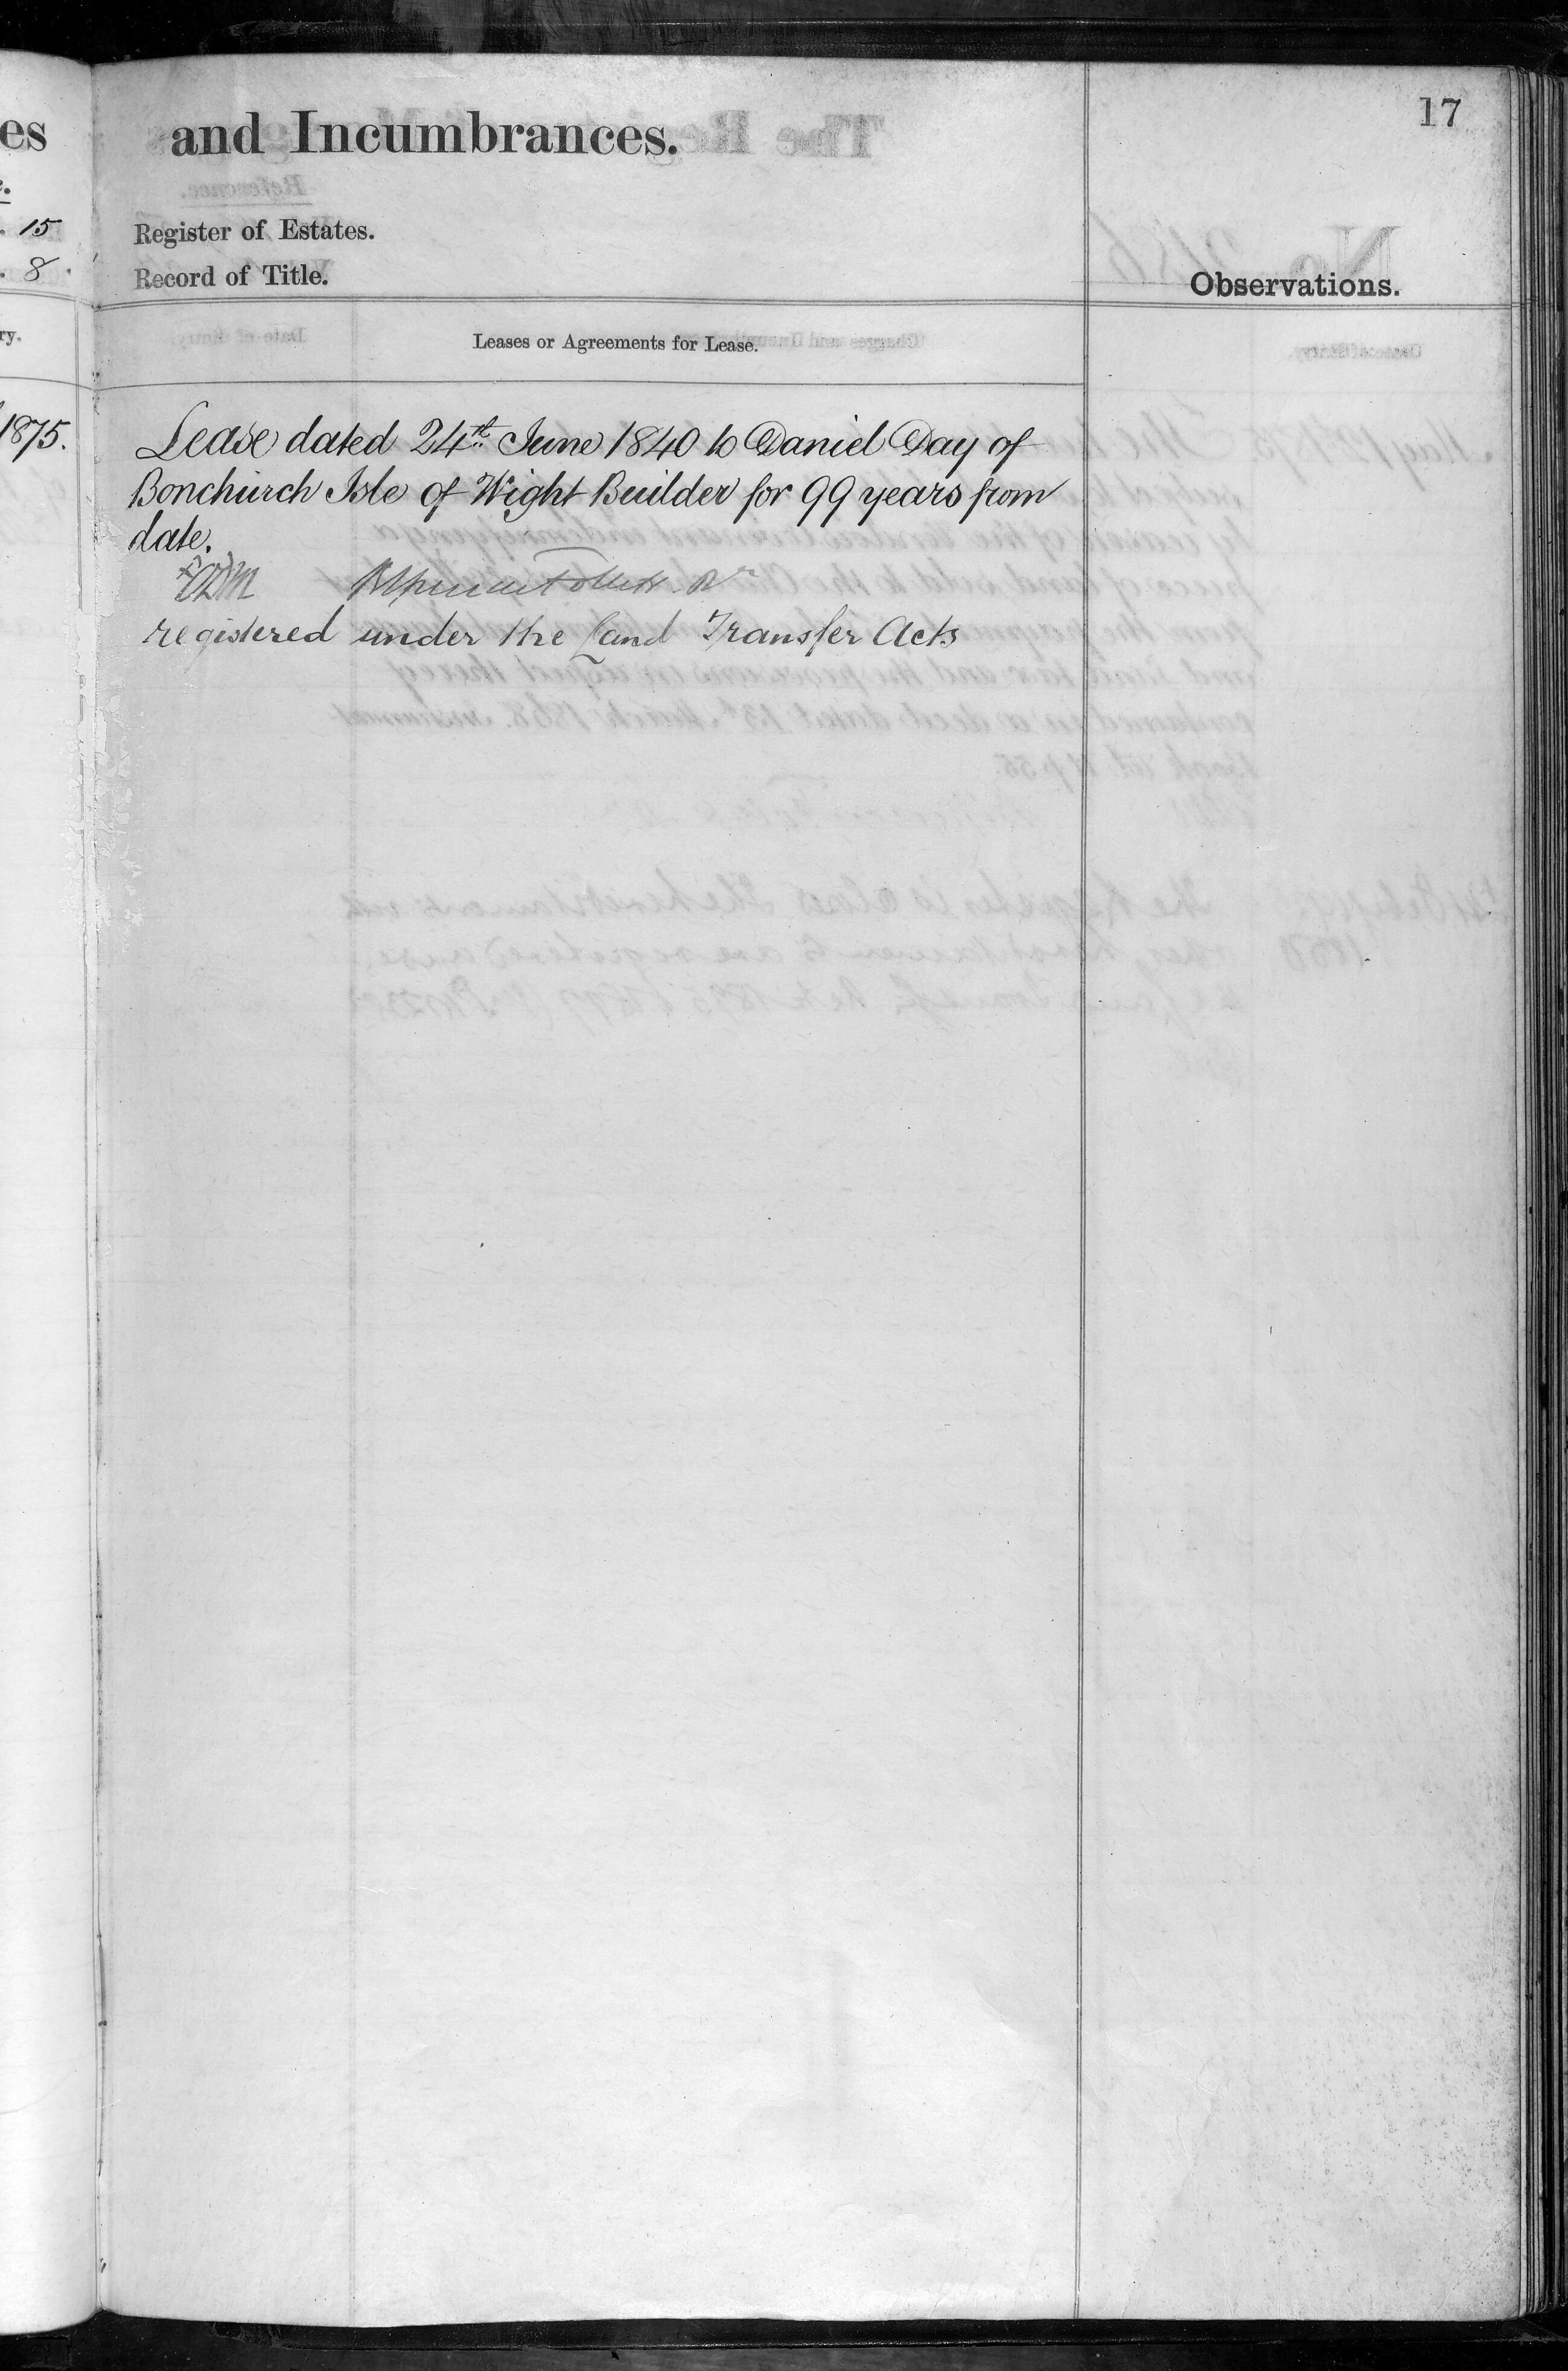 17
es
and Incumbrances.
15
Register of Estates.
8
Record of Title.
Observations.
ry.
Leases or Agreements for Lease.
1875.
Lease dated 24th June 1840 to Daniel Day of
Bonchurch Isle of Wight Builder for 99 years from
date.
registered under the Land Transfer Acts